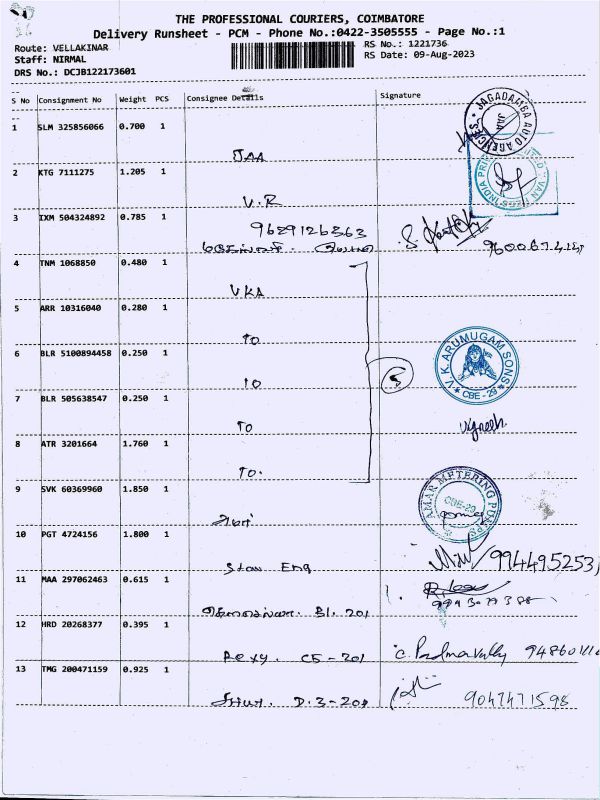 THE PROFESSIONAL COURIERS, COIMBATORE
Delivery Runsheet - PCM - Phone No.:0422-3505555 - Page No.:1
Route: VELLAKINAR
RS No.: 1221736
Staff: NIRMAL
RS Date: 09-Aug-2023
DRS No.: DCJB122173601
S No Consignment No Weight PCS Consignee Details Signature
1 SLM 325856066 0.700 1
JAA
JAGADAMBA AUTO AGENCIES
JAA
2 KTG 7111275 1.205 1
V.R
3 IXM 504324892 0.785 1
9629126363
4 TNM 1068850 0.480 1
VKA
5 ARR 10316040 0.280 1
TO
6 BLR 5100894458 0.250 1
TO
V.K. ARUMUGAM SONS
CBE - 29
7 BLR 505638547 0.250 1
TO
Vignesh
8 ATR 3201664 1.760 1
TO.
5
9 SVK 60369960 1.850 1
அமர்
AMAR METERING PUMPS
CBE-29
10 PGT 4724156 1.800 1
Star Eng
994495253
11 MAA 297062463 0.615 1
B1. 201
12 HRD 20268377 0.395 1
Rexy. C5-201
C. Padmavally
13 TMG 200471159 0.925 1
D.3-201
9047471598